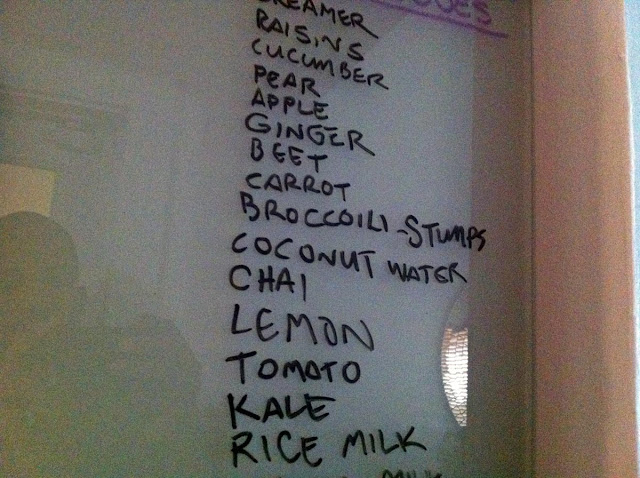 RAISINS
CUCUMBER
PEAR
APPLE
GINGER
BEET
CARROT
BROCCOILI-STUMPS
COCONUT WATER
CHAI
LEMON
TOMATO
KALE
RICE MILK